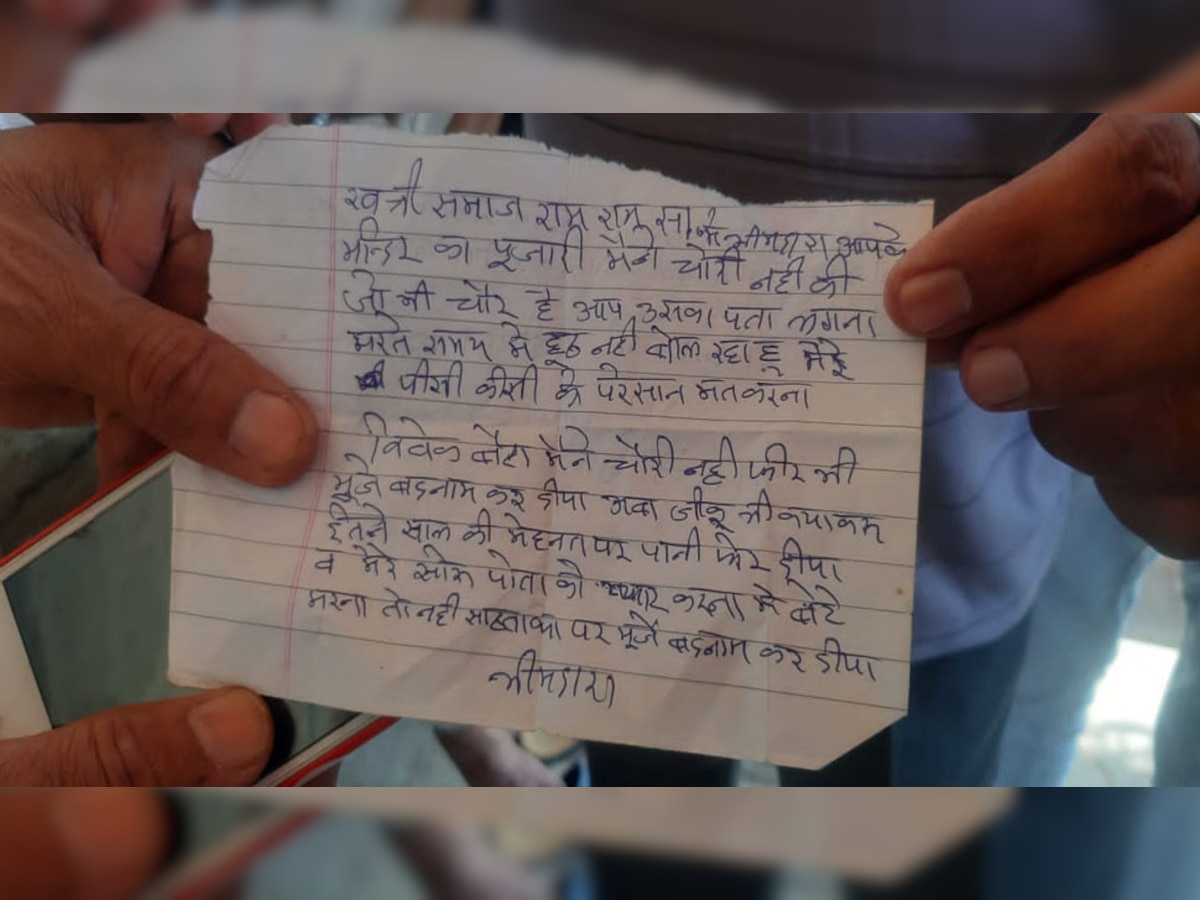 खत्री समाज राम राम सा, मे भीमदास आपके
मन्दिर का पूजारी मैने चोरी नही की
जो भी चोर है आप उसका पता लगना
मरते समय मे झूठ नही बोल रहा हू मेरे
पीछी कीसी को परेसान मत करना
विवेक बेटा मेने चोरी नही फीर भी
मूजे बदनाम कर दीया अबा जीकू भी कया काम
ईतने साल की मेहनत पर पानी फेर दीया
व मेरे पोता को प्यार करना मे बेटे
मरना तो नही पर मूजे बदनाम कर दीया
भीमदास